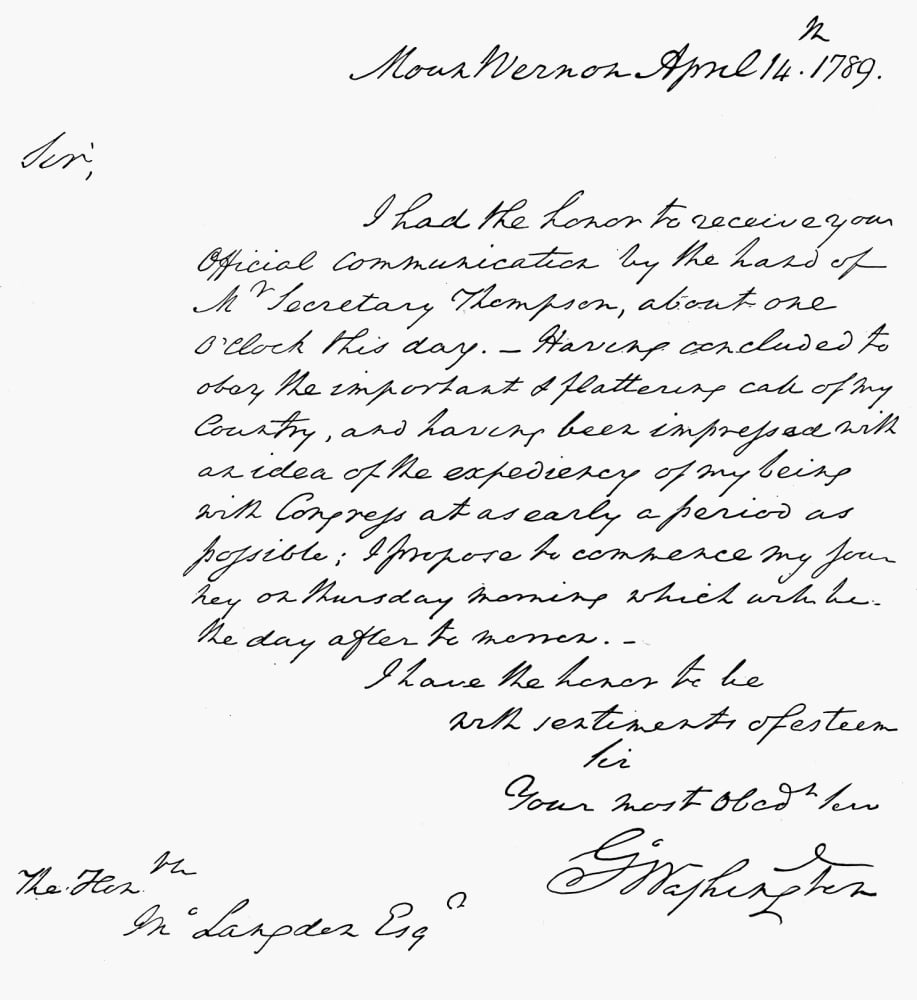 Mount Vernon April 14th. 1789.
Sir,
I had the honor to receive your
Official communication by the hand of
Mr Secretary Thompson, about one
O'Clock this day. – Having concluded to
obey the important & flattering call of my
Country, and having been impressed with
an idea of the expediency of my being
with Congress at as early a period as
possible; I propose to commence my jour
ney on thursday morning which will be
the day after to morrow. –
I have the honor to be
with sentiments of esteem
Sir
Your most Obedt Serv
Go Washington
The Honble
Jno Langdon Esqr